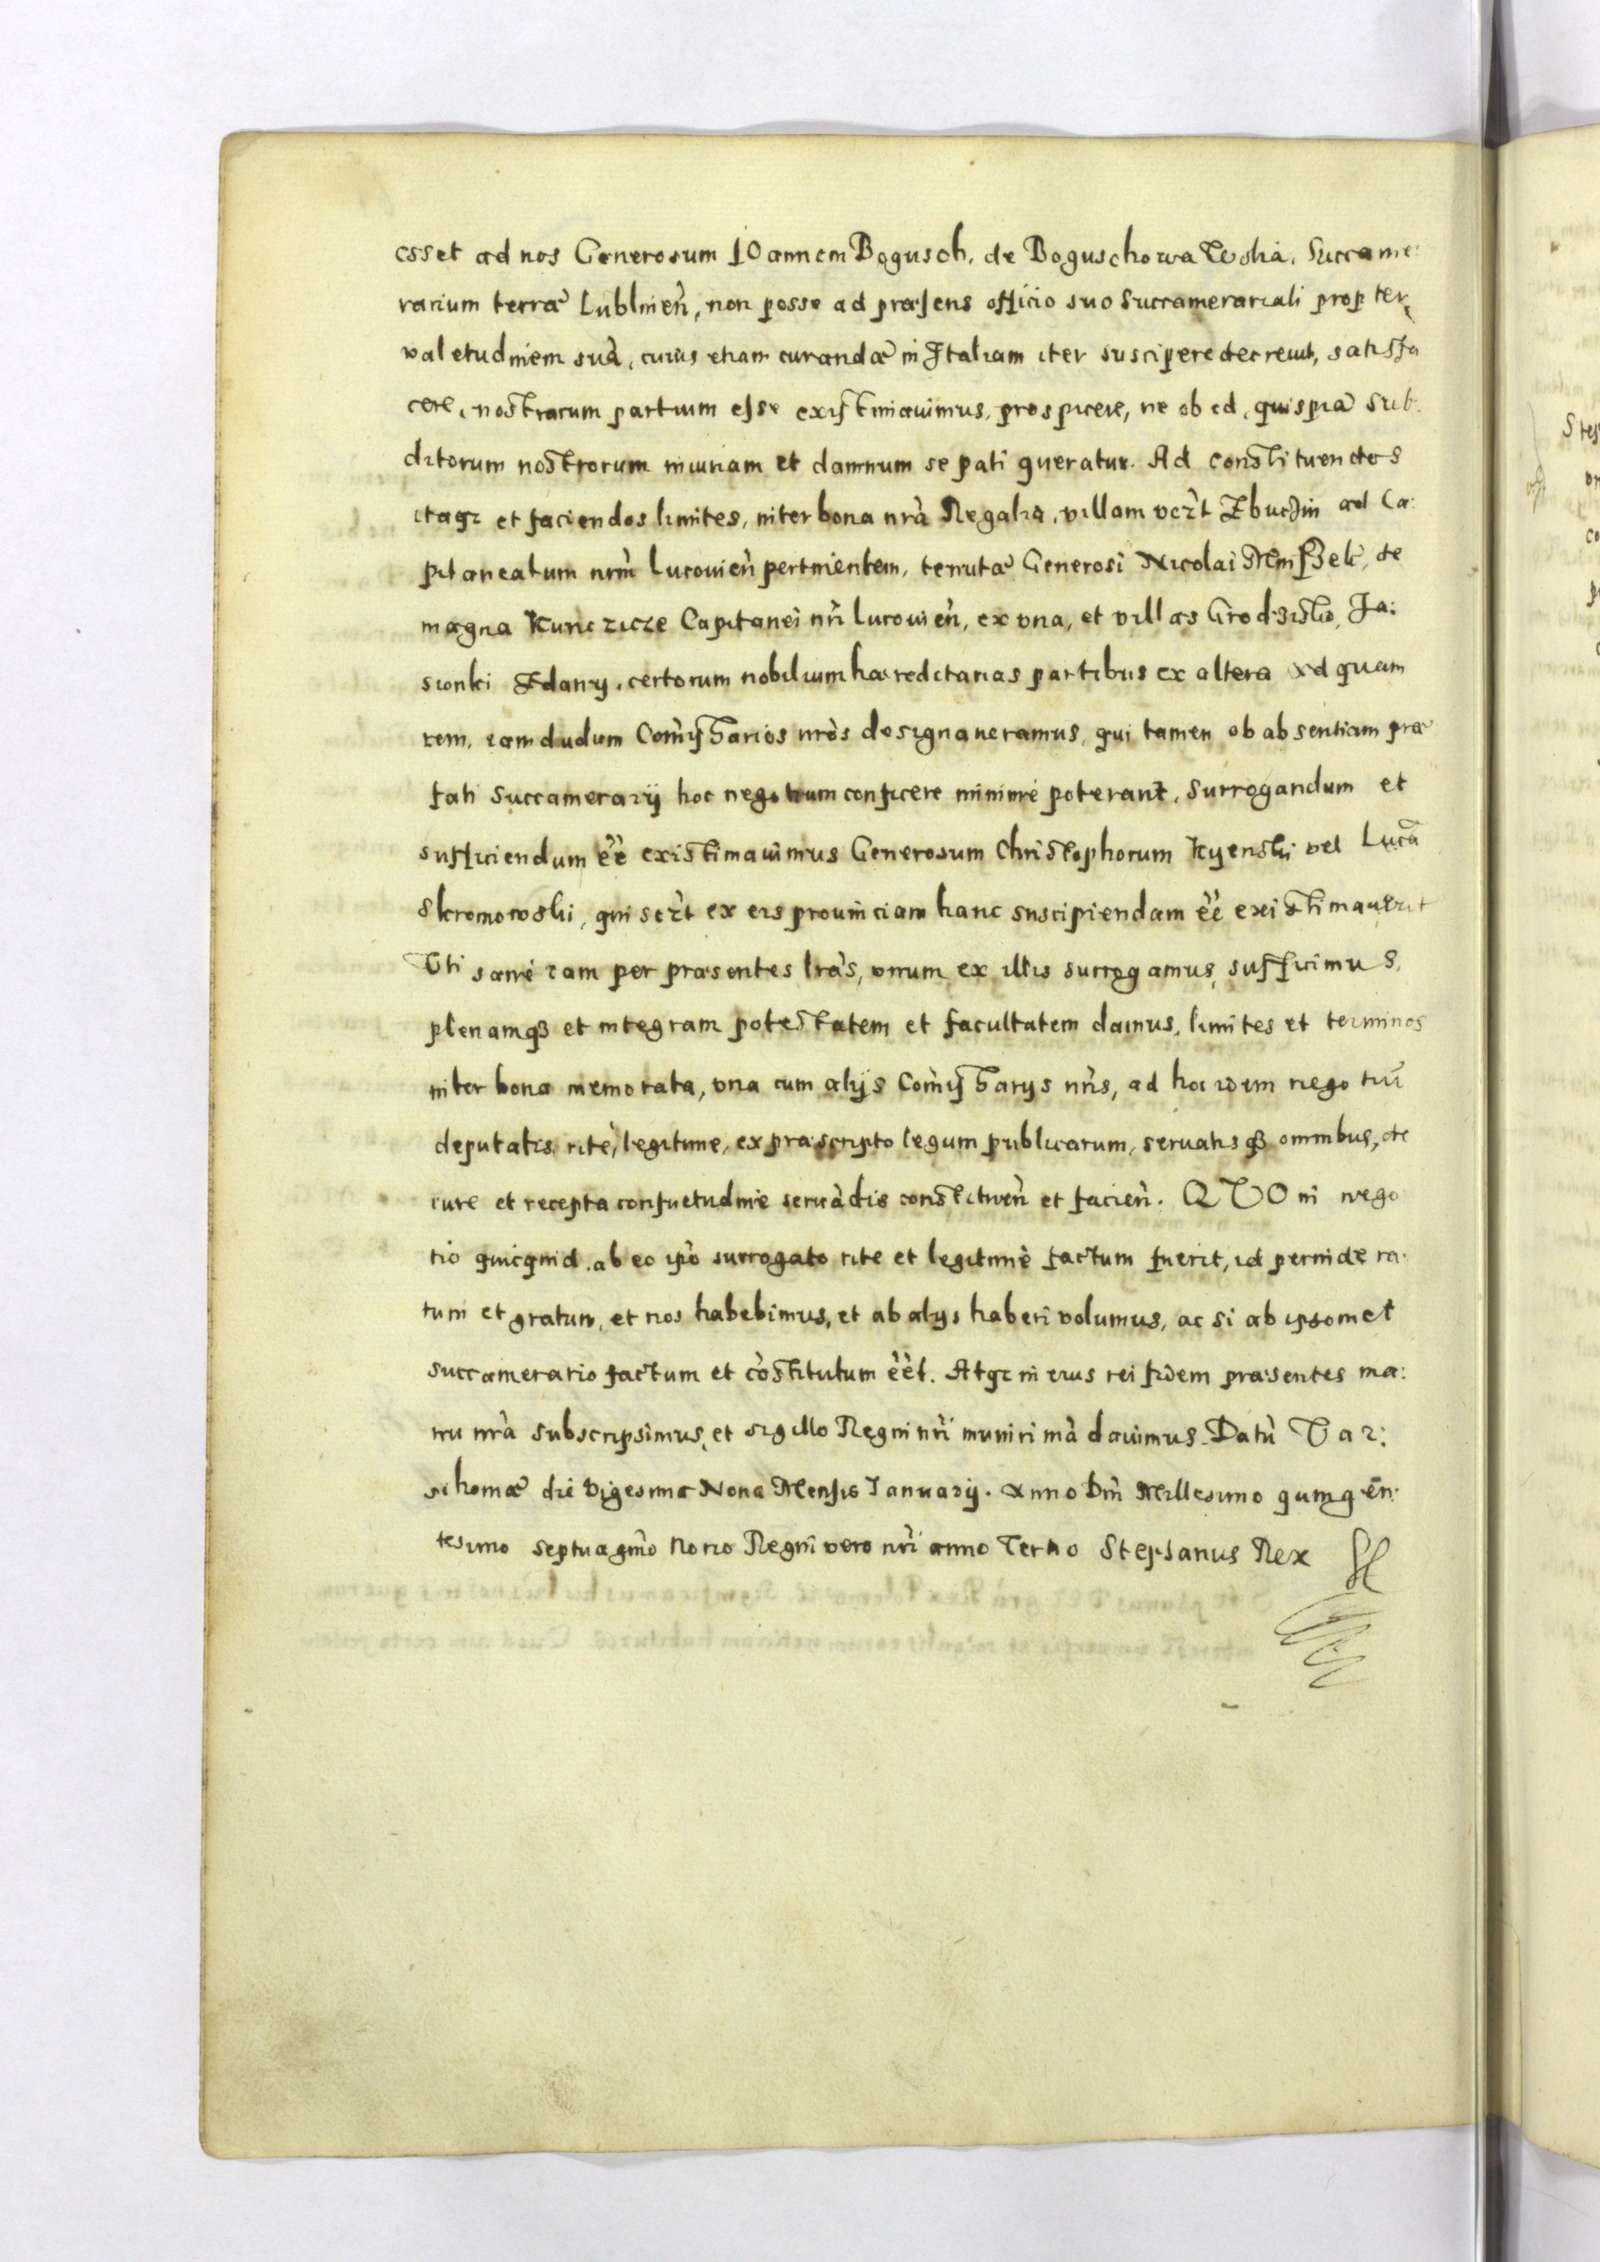 esset ad nos Generosum IOannem Bogusch, de Boguschowa Wolia, Succame:
rarium terræ Lublineñ, non posse ad præsens officio suo Succamerariali propter
valetudinem suã, cuius etiam curandæ in Italiam iter suscipere decreuit, satisfa
cere, nostrarum partium esse existimauimus, prospicere, ne ob id, quispiã sub:
ditorum nostrorum iniuriam et damnum se pati queratur. Ad constituendos
itaqz et faciendos limites, inter bona nrã Regalia, villam vezt Zbuczin ad Ca:
pitaneatum nrm̃ Lucouieñ pertinentem, tenutæ Generosi Nicolai de
magna Kunczicze Capitanei nrĩ Lucouieñ, ex vna, et villas Grodzisko, Ja:
sionki Zdany, certorum nobilium hæreditarias partibus ex altera Ad quam
rem, iam dudum Com̃issarios nrõs designaueramus, qui tamen ob absentiam præ
fati Succamerarij hoc negotium conficere minimè poterant, Surrogandum et
sufficiendum eẽ existimauimus Generosum Christophorum Kijenski vel Lucã
Skromowski, qui sezt ex eis prouinciam hanc suscipiendam eẽ existimauerit
Vti sanè iam per præsentes lrãs, vnum ex illis surrogamus, sufficimus,
plenamqz et integram potestatem et facultatem damus, limites et terminos
inter bona memorata, vna cum alijs Com̃issarijs nrĩs, ad hoc idem negotiũ
deputatis, ritè, legitime, ex præscripto legum publicarum, seruatisqz omnibus, de
iure et recepta consuetudine seruãdis constitueñ et facieñ. QVO in nego
tio quicquid ab eo ipõ surrogato rite et legitimè factum fuerit, id perinde ra:
tum et gratum, et nos habebimus, et ab alijs haberi volumus, ac si ab ipsomet
succamerario factum et cõstitutum eẽt. Atqz in eius rei fidem præsentes ma:
nu nrã subscripsimus, et sigillo Regni nrĩ muniri mãdauimus. Datũ Var:
schouiæ die Vigesima Nona Mensis Ianuarij. Anno Dnĩ Millesimo quingen:
tesimo septuagm̃o Nono Regni vero nrĩ anno Tertio Stephanus Rex